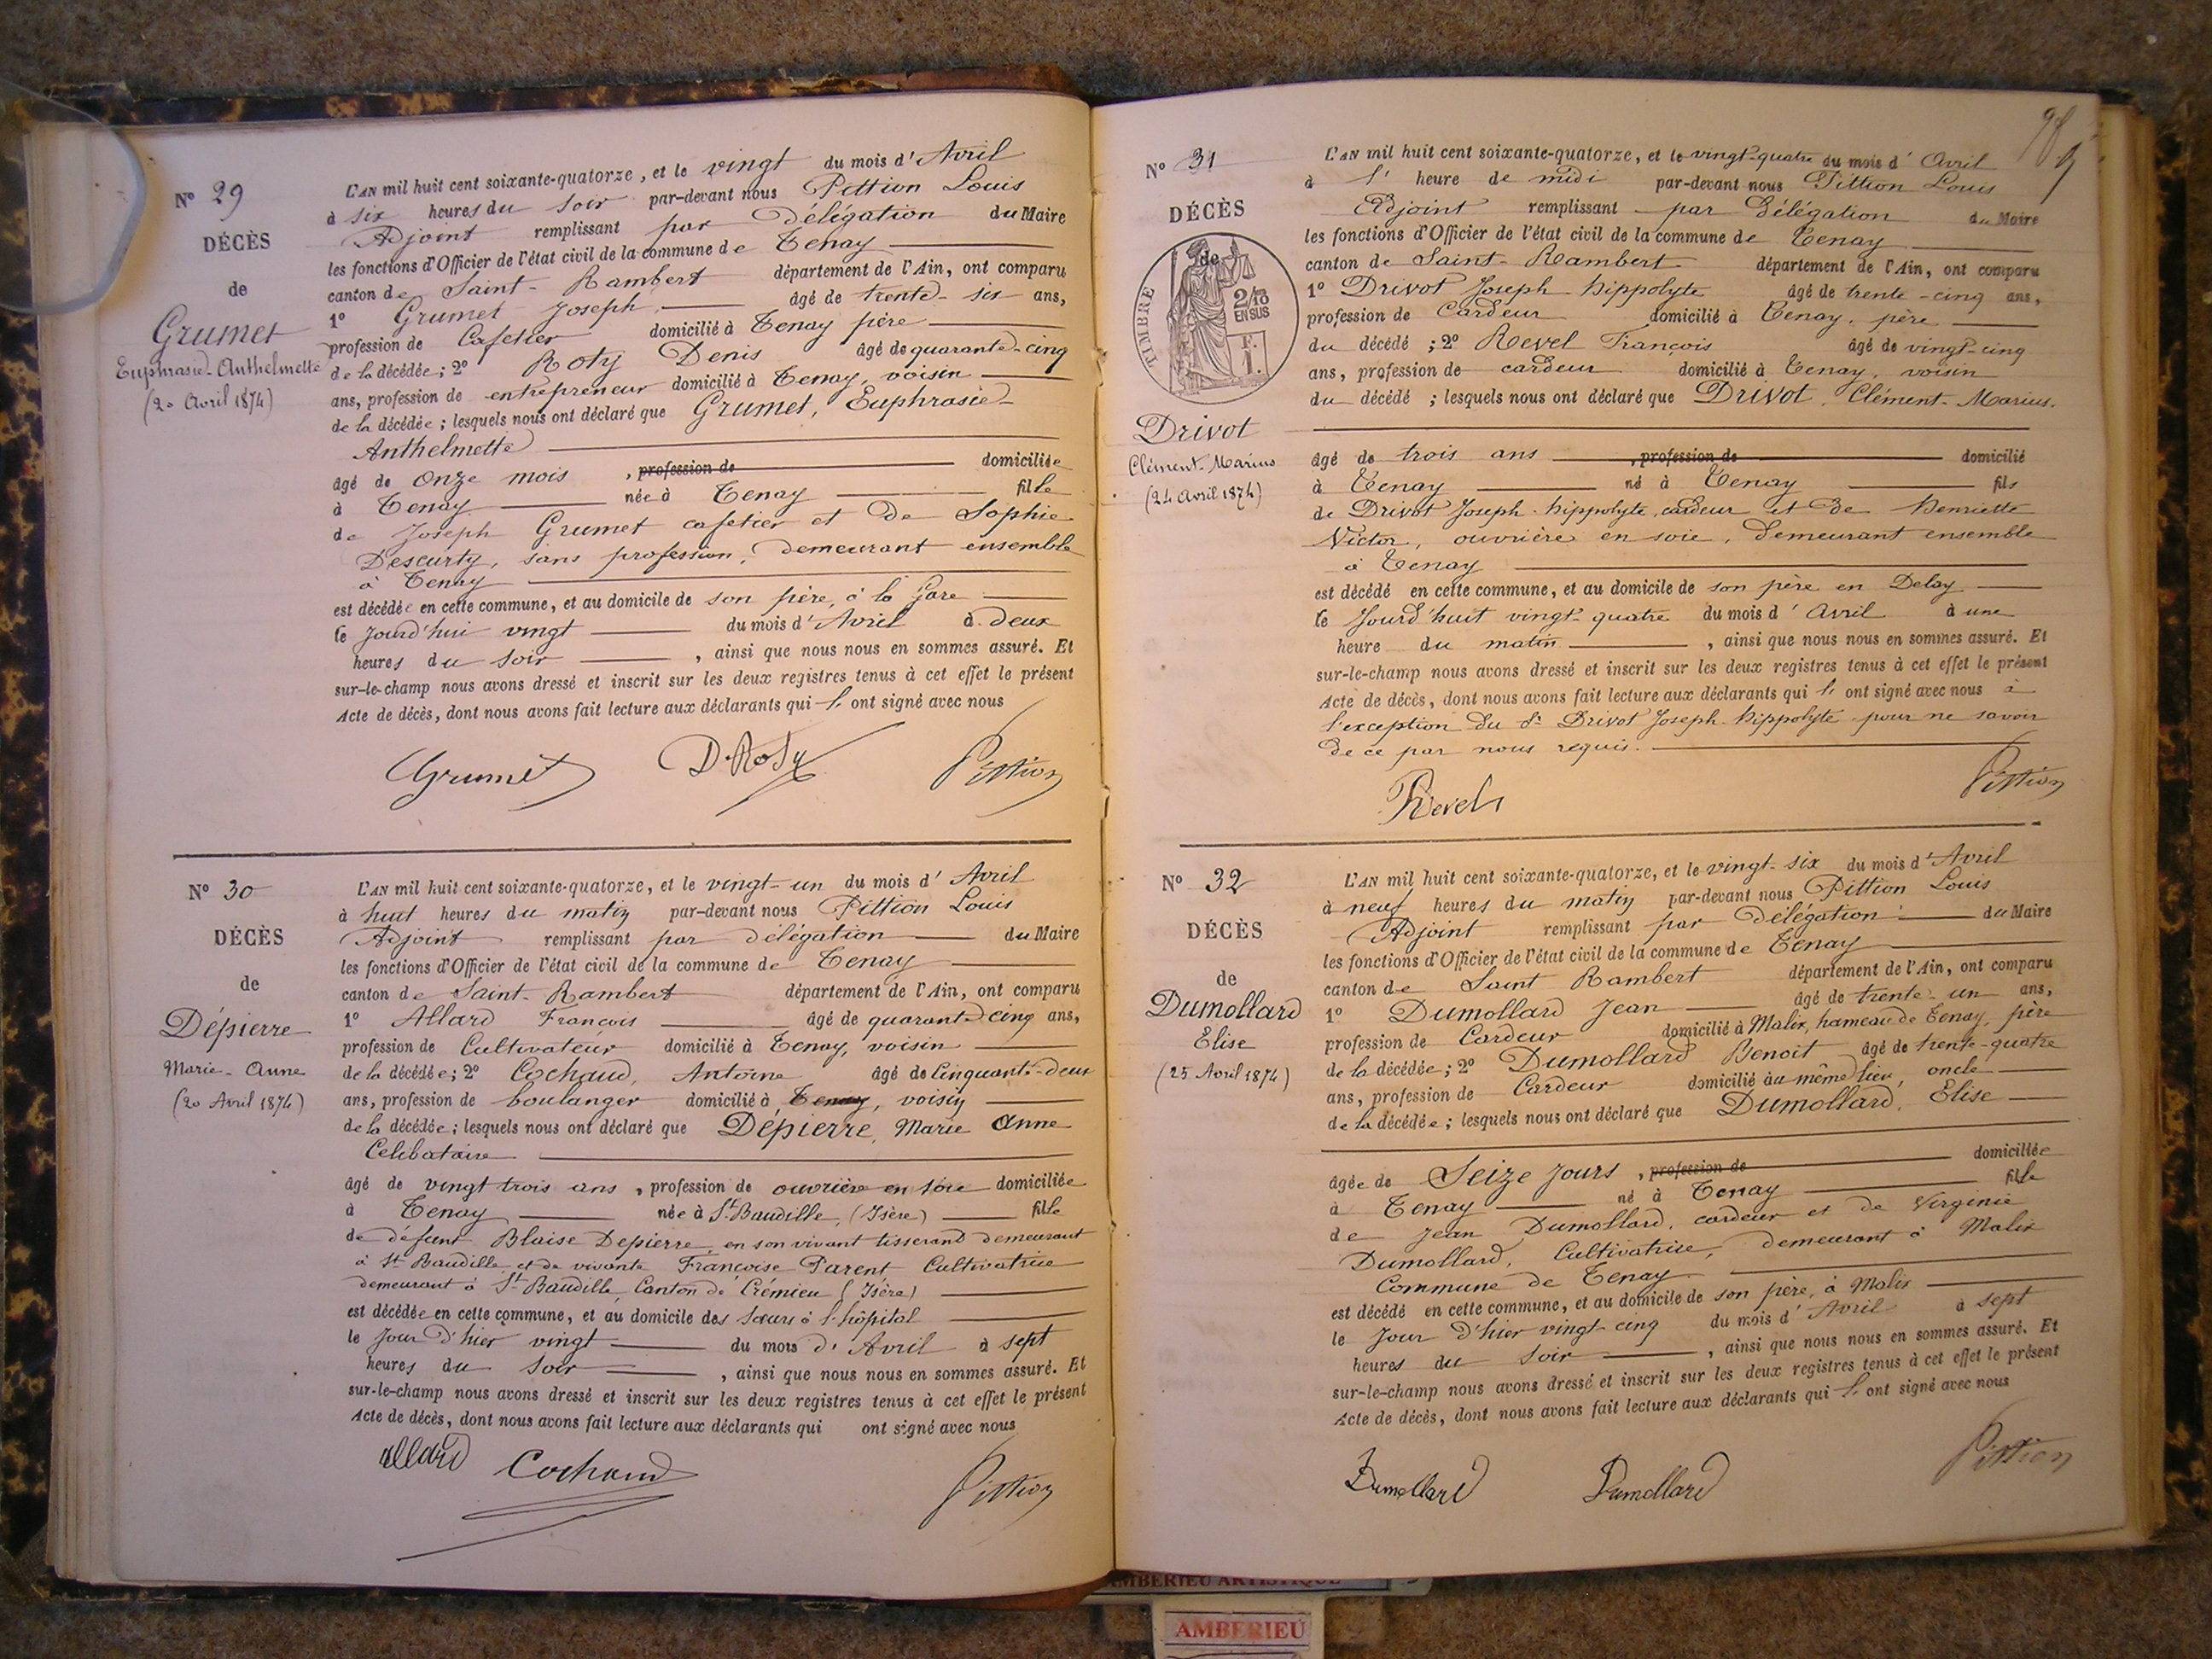 Nº 29
DÉCÈS
de
Grumet
Euphrasie-Anthelmette
(20 Avril 1874)
L'AN mil huit cent soixante-quatorze, et le vingt du mois d'Avril
à six heures du soir par-devant nous Pittion Louis
Adjoint remplissant par Délégation du Maire
les fonctions d'Officier de l'état civil de la commune de Tenay
canton de Saint-Rambert département de l'Ain, ont comparu
1º Grumet Joseph âgé de trente-six ans,
profession de Cafetier domicilié à Tenay père
de la décédée; 2º Roty Denis âgé de quarante-cinq
ans, profession de entrepreneur domicilié à Tenay, voisin
de la décédée; lesquels nous ont déclaré que Grumet, Euphrasie-
Anthelmette
âgé de onze mois, profession de domiciliée
à Tenay née à Tenay fille
de Joseph Grumet cafetier et de Sophie
Descurty, sans profession, demeurant ensemble
à Tenay
est décédée en cette commune, et au domicile de son père, à la Gare
le jourd'hui vingt du mois d'Avril à deux
heures du soir, ainsi que nous nous en sommes assuré. Et
sur-le-champ nous avons dressé et inscrit sur les deux registres tenus à cet effet le présent
Acte de décès, dont nous avons fait lecture aux déclarants qui l' ont signé avec nous
Grumet D. Roty Pittion
Nº 30
DÉCÈS
de
Dépierre
Marie-Anne
(20 Avril 1874)
L'AN mil huit cent soixante-quatorze, et le vingt-un du mois d'Avril
à huit heures du matin par-devant nous Pittion Louis
Adjoint remplissant par délégation du Maire
les fonctions d'Officier de l'état civil de la commune de Tenay
canton de Saint-Rambert département de l'Ain, ont comparu
1º Allard François âgé de quarante-cinq ans,
profession de Cultivateur domicilié à Tenay, voisin
de la décédée; 2º Cochaud, Antoine âgé de Cinquante-deux
ans, profession de boulanger domicilié à Tenay, voisin
de la décédée; lesquels nous ont déclaré que Dépierre, Marie Anne
Celibataire
âgé de vingt trois ans, profession de ouvrière en soie domiciliée
à Tenay née à St Baudille, (Isère) fille
de défunt Blaise Depierre, en son vivant tisserand demeurant
à St Baudille, et de vivante Françoise Parent Cultivatrice
demeurant à St Baudille, Canton de Crémieu (Isère)
est décédée en cette commune, et au domicile des Sœurs à l'hôpital
le jour d'hier vingt du mois d'Avril à sept
heures du soir, ainsi que nous nous en sommes assuré. Et
sur-le-champ nous avons dressé et inscrit sur les deux registres tenus à cet effet le présent
Acte de décès, dont nous avons fait lecture aux déclarants qui ont signé avec nous
Allard Cochaud Pittion
Nº 31
DÉCÈS
de
TIMBRE
2/10
EN SUS
F.
1.
Drivot
Clément-Marius
(24 Avril 1874)
L'AN mil huit cent soixante-quatorze, et le vingt-quatre du mois d'Avril
à l' heure de midi par-devant nous Pittion Louis
Adjoint remplissant par Délégation du Maire
les fonctions d'Officier de l'état civil de la commune de Tenay
canton de Saint-Rambert département de l'Ain, ont comparu
1º Drivot Joseph-hippolyte âgé de trente-cinq ans,
profession de Cardeur domicilié à Tenay, père
du décédé; 2º Revel François âgé de vingt-cinq
ans, profession de cardeur domicilié à Tenay, voisin
du décédé; lesquels nous ont déclaré que Drivot, Clément-Marius.
âgé de trois ans, profession de domicilié
à Tenay né à Tenay fils
de Drivot Joseph-hippolyte, cardeur et de Henriette
Victor, ouvrière en soie, demeurant ensemble
à Tenay
est décédé en cette commune, et au domicile de son père en Delay
le jourd'huit vingt-quatre du mois d'Avril à une
heure du matin, ainsi que nous nous en sommes assuré. Et
sur-le-champ nous avons dressé et inscrit sur les deux registres tenus à cet effet le présent
Acte de décès, dont nous avons fait lecture aux déclarants qui l' ont signé avec nous à
l'exception du Sr Drivot Joseph-hippolyte pour ne savoir
de ce par nous requis.
Revel Pittion
Nº 32
DÉCÈS
de
Dumollard
Elise
(25 Avril 1874)
L'AN mil huit cent soixante-quatorze, et le vingt-six du mois d'Avril
à neuf heures du matin par-devant nous Pittion Louis
Adjoint remplissant par Délégation du Maire
les fonctions d'Officier de l'état civil de la commune de Tenay
canton de Saint Rambert département de l'Ain, ont comparu
1º Dumollard Jean âgé de trente-un ans,
profession de Cardeur domicilié à Malix, hameau de Tenay, père
de la décédée; 2º Dumollard Benoit âgé de trente-quatre
ans, profession de Cardeur domicilié au même lieu, oncle
de la décédée; lesquels nous ont déclaré que Dumollard, Elise
âgée de Seize jours, profession de domiciliée
à Tenay né à Tenay fille
de Jean Dumollard, cardeur et de Virginie
Dumollard, Cultivatrice, demeurant à Malix
Commune de Tenay
est décédé en cette commune, et au domicile de son père, à Malix
le jour d'hier vingt-cinq du mois d'Avril à sept
heures du soir, ainsi que nous nous en sommes assuré. Et
sur-le-champ nous avons dressé et inscrit sur les deux registres tenus à cet effet le présent
Acte de décès, dont nous avons fait lecture aux déclarants qui l' ont signé avec nous
Dumollard Dumollard Pittion
AMBERIEU ARTISTIQUE
AMBERIEU